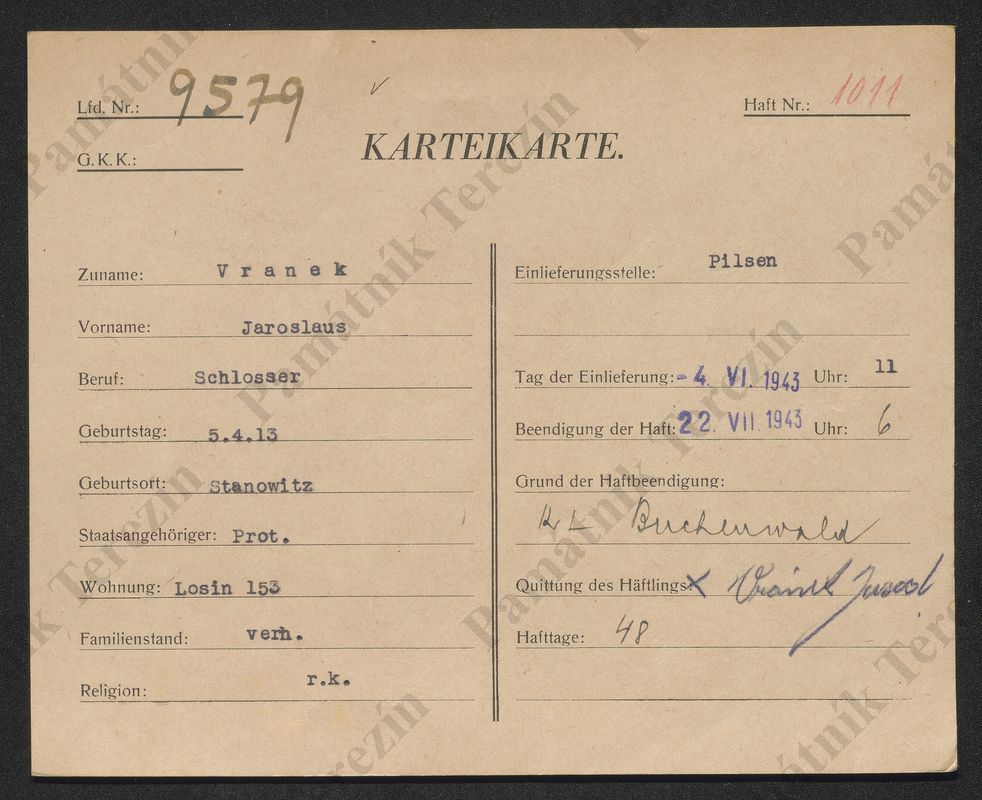 Lfd. Nr.: 9579
Haft Nr.: 1011
G. K. K.:
KARTEIKARTE.
Zuname: Vranek
Vorname: Jaroslaus
Beruf: Schlosser
Geburtstag: 5.4.13
Geburtsort: Stanowitz
Staatsangehöriger: Prot.
Wohnung: Losin 153
Familienstand: verh.
Religion: r.k.
Einlieferungsstelle: Pilsen
Tag der Einlieferung: - 4. VI. 1943 Uhr: 11
Beendigung der Haft: 22. VII. 1943 Uhr: 6
Grund der Haftbeendigung:
KL Buchenwald
Quittung des Häftlings:
Hafttage: 48
Památník Terezín